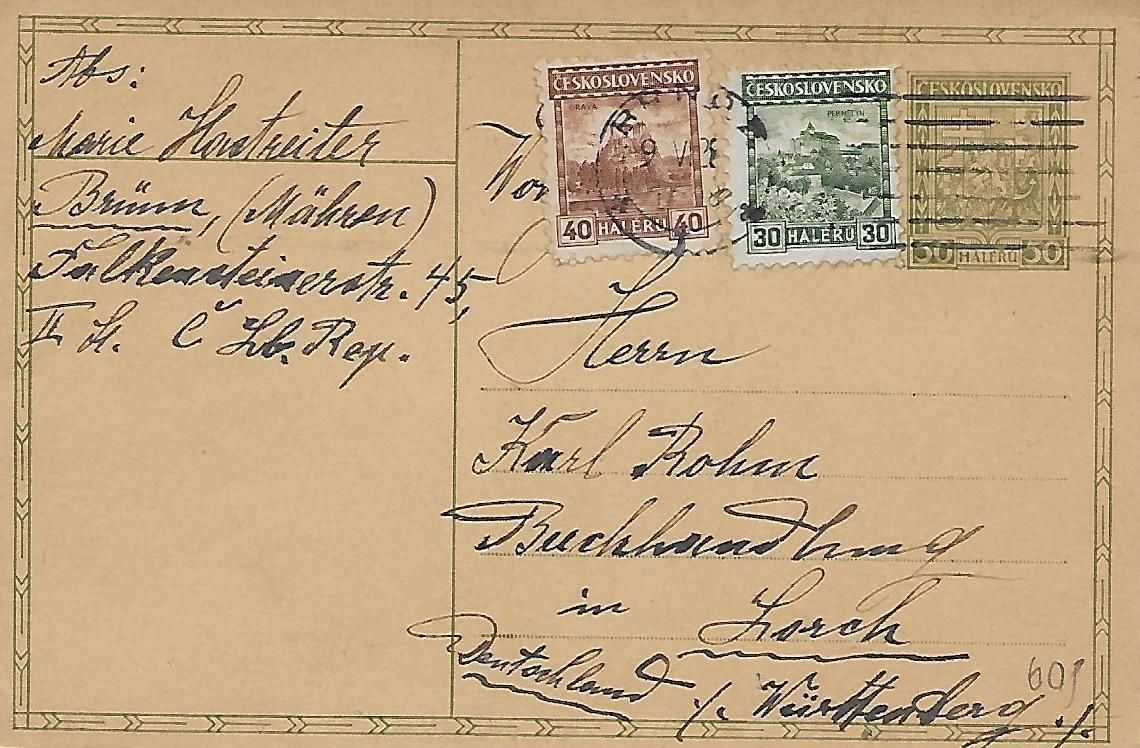 Abs:
Marie Hostreiter
Brünn, (Mähren)
Falkensteinerstr. 45,
II St. Č
ČESKOSLOVENSKO
ORAVA
40 HALÉŘŮ 40
ČESKOSLOVENSKO
PERNŠTYN
30 HALÉŘŮ 30
ČESKOSLOVENSKO
50 HALÉŘŮ 50
9 V
Herrn
Karl Rohm
Buchhandlung
in Lorch
Deutschland ./. Württemberg ./.
601